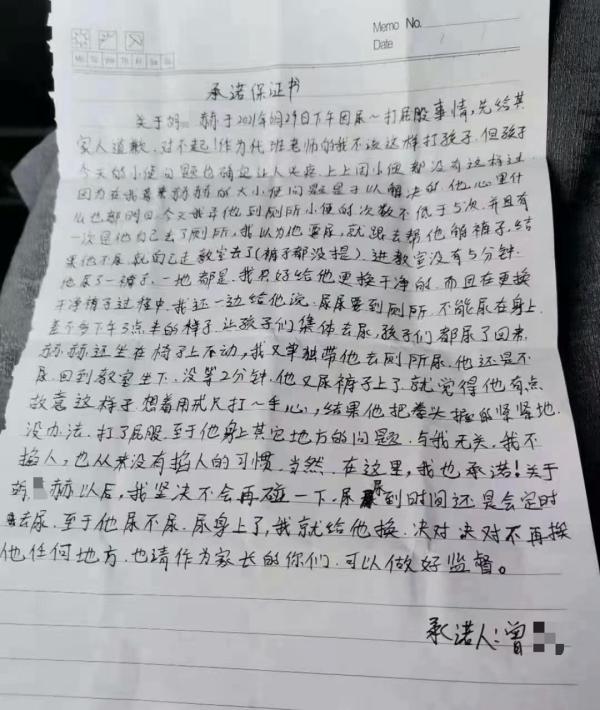 Memo No.
Date
Mo Tu We Th Fr Sa Su
承诺保证书
关于胡 赫于2021年 月29日下午因尿~打屁股事情,先给其
家人道歉,对不起!作为代班老师的我不该这样打孩子.但孩子
今天的小便问题也确实让人头疼.上上周小便都没有这样过.
因为在我看来赫赫的大小便问题是可以解决的.他心里什
么也都明白.今天我寻他到厕所小便的次数不低于5次.并且有
一次是他自己去了厕所,我以为他要尿,就跟去帮他脱裤子.结
果他不尿.就自己走教室去了(裤子都没提).进教室没有5分钟.
他尿了一裤子.一地都是.我只好给他更换干净的.而且在更换
干净裤子过程中.我还一边给他说.尿尿要到厕所.不能尿在身上.
差不多下午3点半的样子.让孩子们集体去尿,孩子们都尿了回来.
赫赫还坐在椅子上不动,我又单独带他去厕所尿.他还是不
尿.回到教室坐下.没等2分钟.他又尿裤子上了.就觉得他有点
故意这样子.想着用戒尺打~手心,结果他把拳头握的紧紧地.
没办法.打了屁股.至于他身上其它地方的问题.与我无关.我不
掐人,也从来没有掐人的习惯.当然.在这里,我也承诺!关于
胡 赫以后,我坚决不会再碰一下.尿尿到时间还是会定时
去尿.至于他尿不尿.尿身上了,我就给他换.决对决对不再挨
他任何地方.也请作为家长的你们.可以做好监督。
承诺人:曾